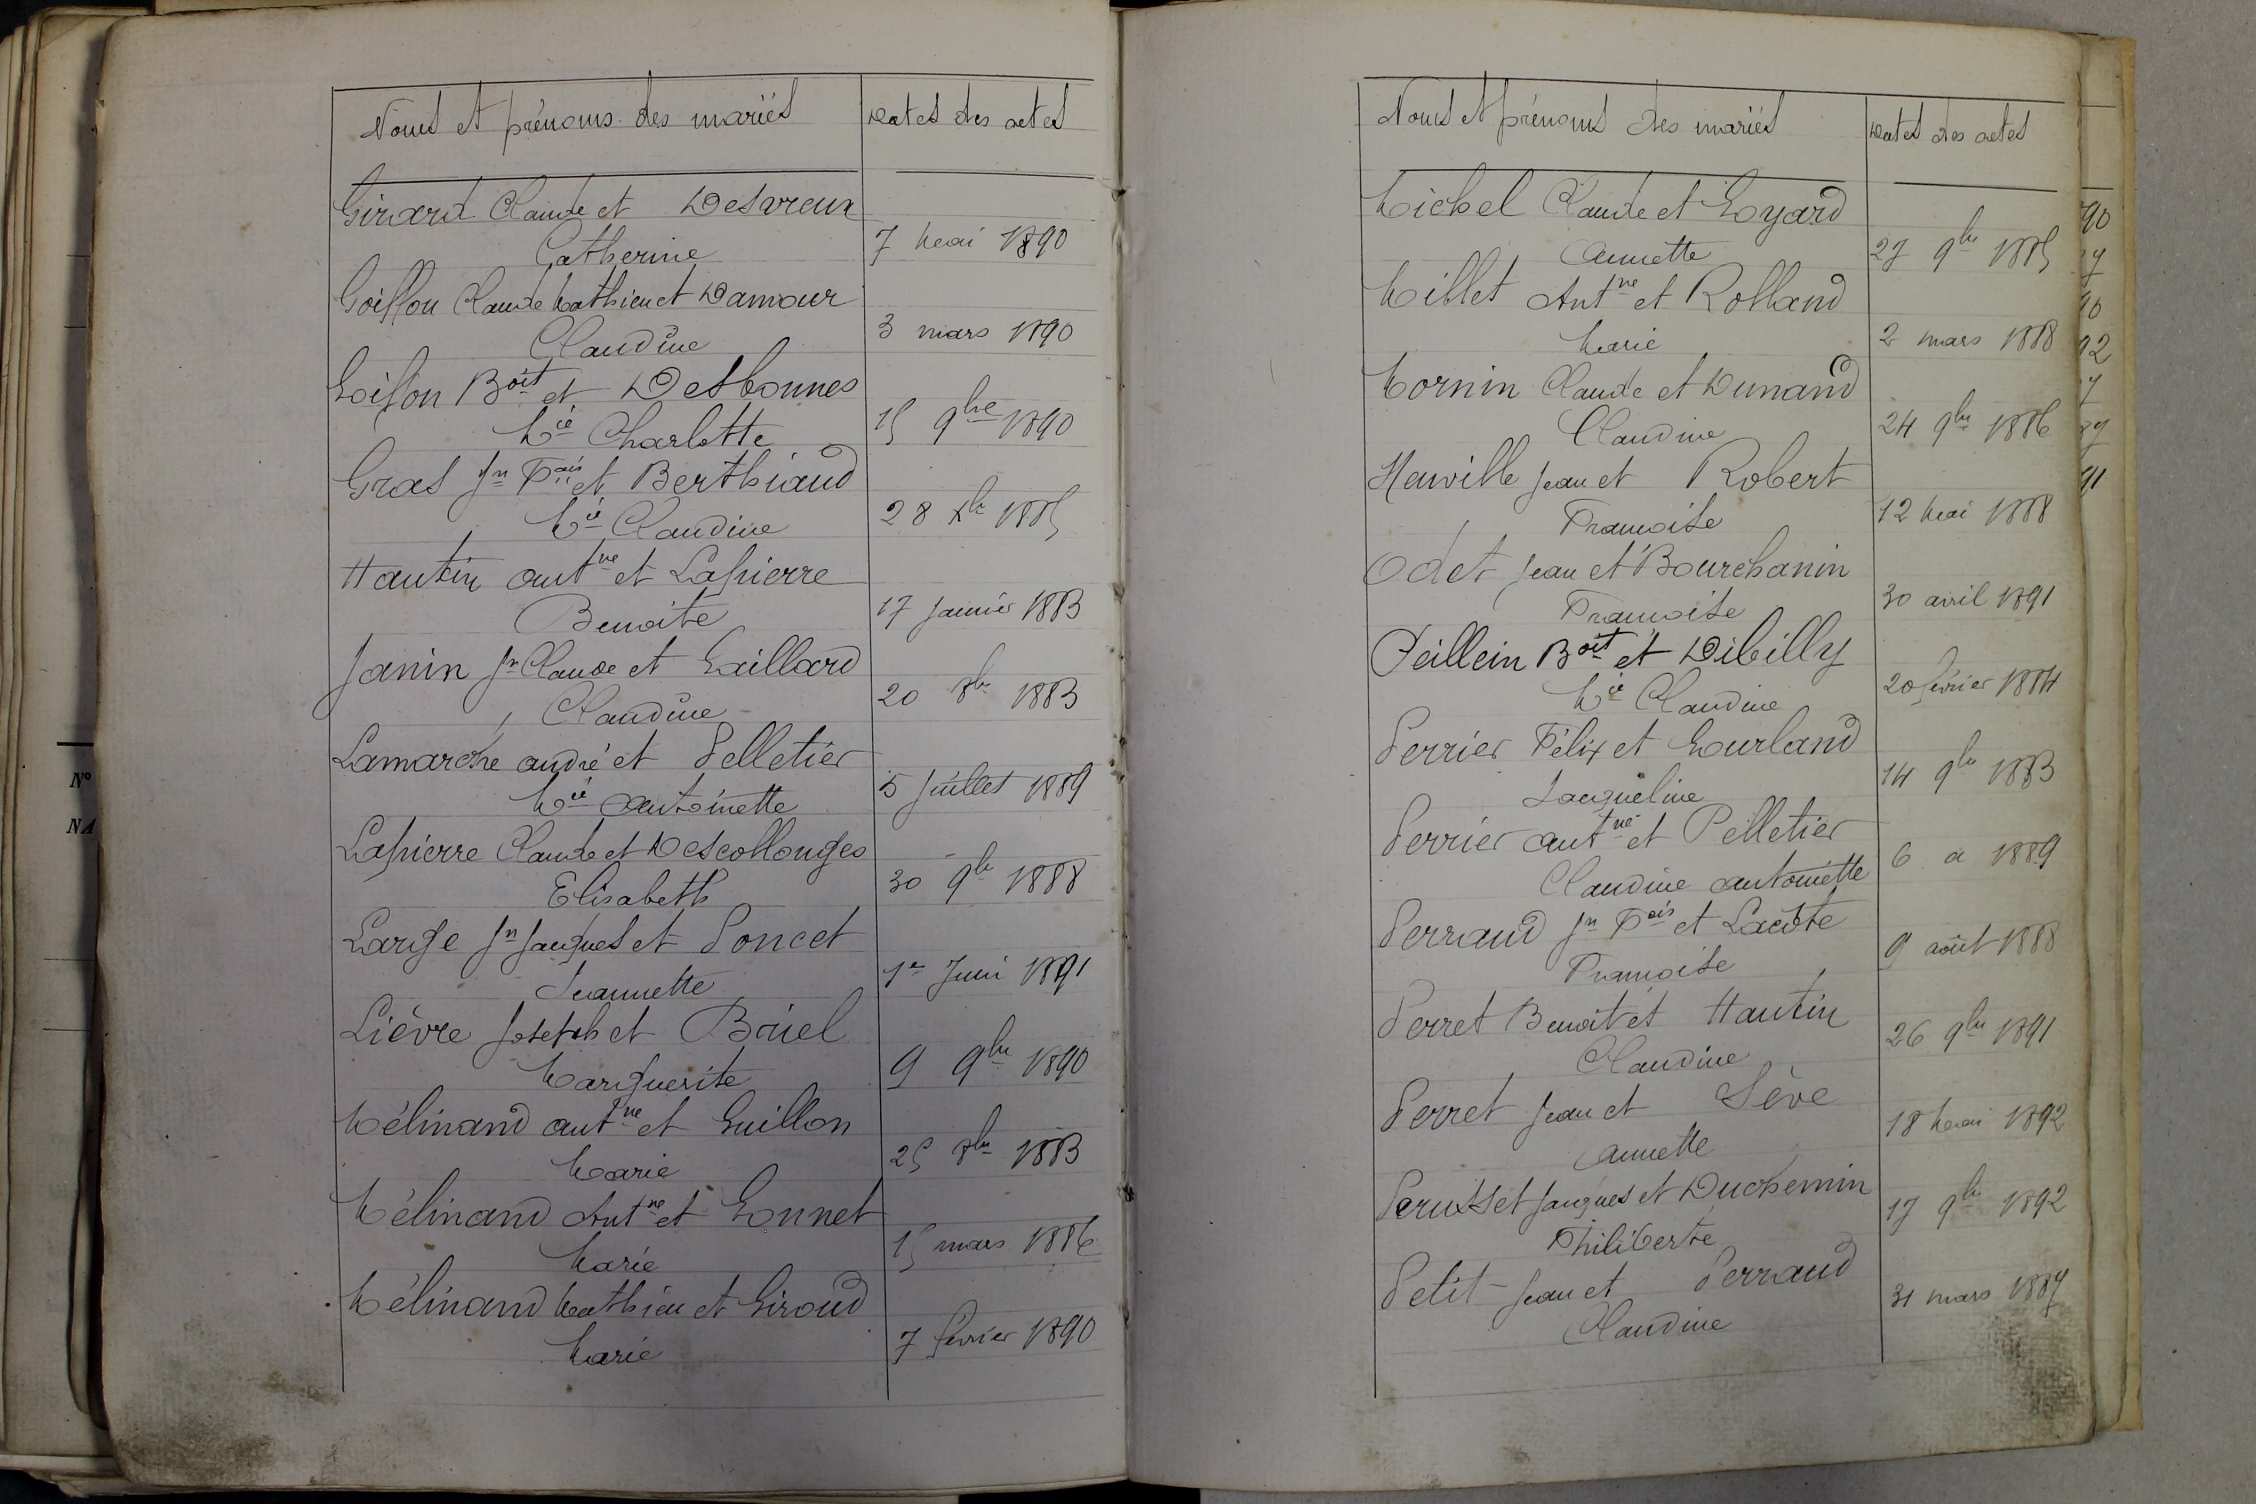 Noms et prénoms des mariés
Dates des actes
Girard Claude et Desvreux
Catherine
7 Mai 1890
Goiffon Claude Mathieu et Damour
Claudine
3 mars 1890
Goiffon Boit et Desbonnes
Mie Charlotte
15 9bre 1890
Gras Jn Fois et Berthiaud
Mie Claudine
28 Xbr 1885
Hautin antne et Lapierre
Benoite
17 Janvier 1883
Janin Jn Claude et Gaillard
Claudine
20 8br 1883
Lamarche andré et Pelletier
Mie antoinette
5 Juillet 1889
Lapierre Claude et Descollonges
Elisabeth
30 9br 1888
Large Jn Jacques et Poncet
Jeannette
1er Juin 1891
Lièvre Joseph et Bruel
Marguerite
9 9bre 1890
Mélinand antne et Guillon
Marie
25 8br 1883
Mélinand Antne et Gonnet
Marie
15 mars 1886
Mélinand Mathieu et Giroud
Marie
7 février 1890
N°
NA
Noms et prénoms des mariés
Dates des actes
Michel Claude et Goyard
annette
27 9bre 1885
Millet Antne et Rolland
Marie
2 mars 1888
Mornin Claude et Dunand
Claudine
24 9bre 1886
Robert
Jean et
Françoise
12 Mai 1888
Odet Jean et Bourchanin
Françoise
30 avril 1891
Peillein Boit et Dibilly
Mie Claudine
20 février 1884
Perrier Félix et Gourland
Jacqueline
14 9bre 1883
Perrier antne et Pelletier
Claudine antoinette
6 a 1889
Perraud Jn Fois et Lacôte
Françoise
9 août 1888
Perret Benoit et Hautin
Claudine
26 9bre 1891
Perret Jean et Sève
annette
18 Mai 1892
Perusset Jacques et Duchemin
Philiberte
17 9br 1892
Petit Jean et Perraud
Claudine
31 mars 1887
90
92
91